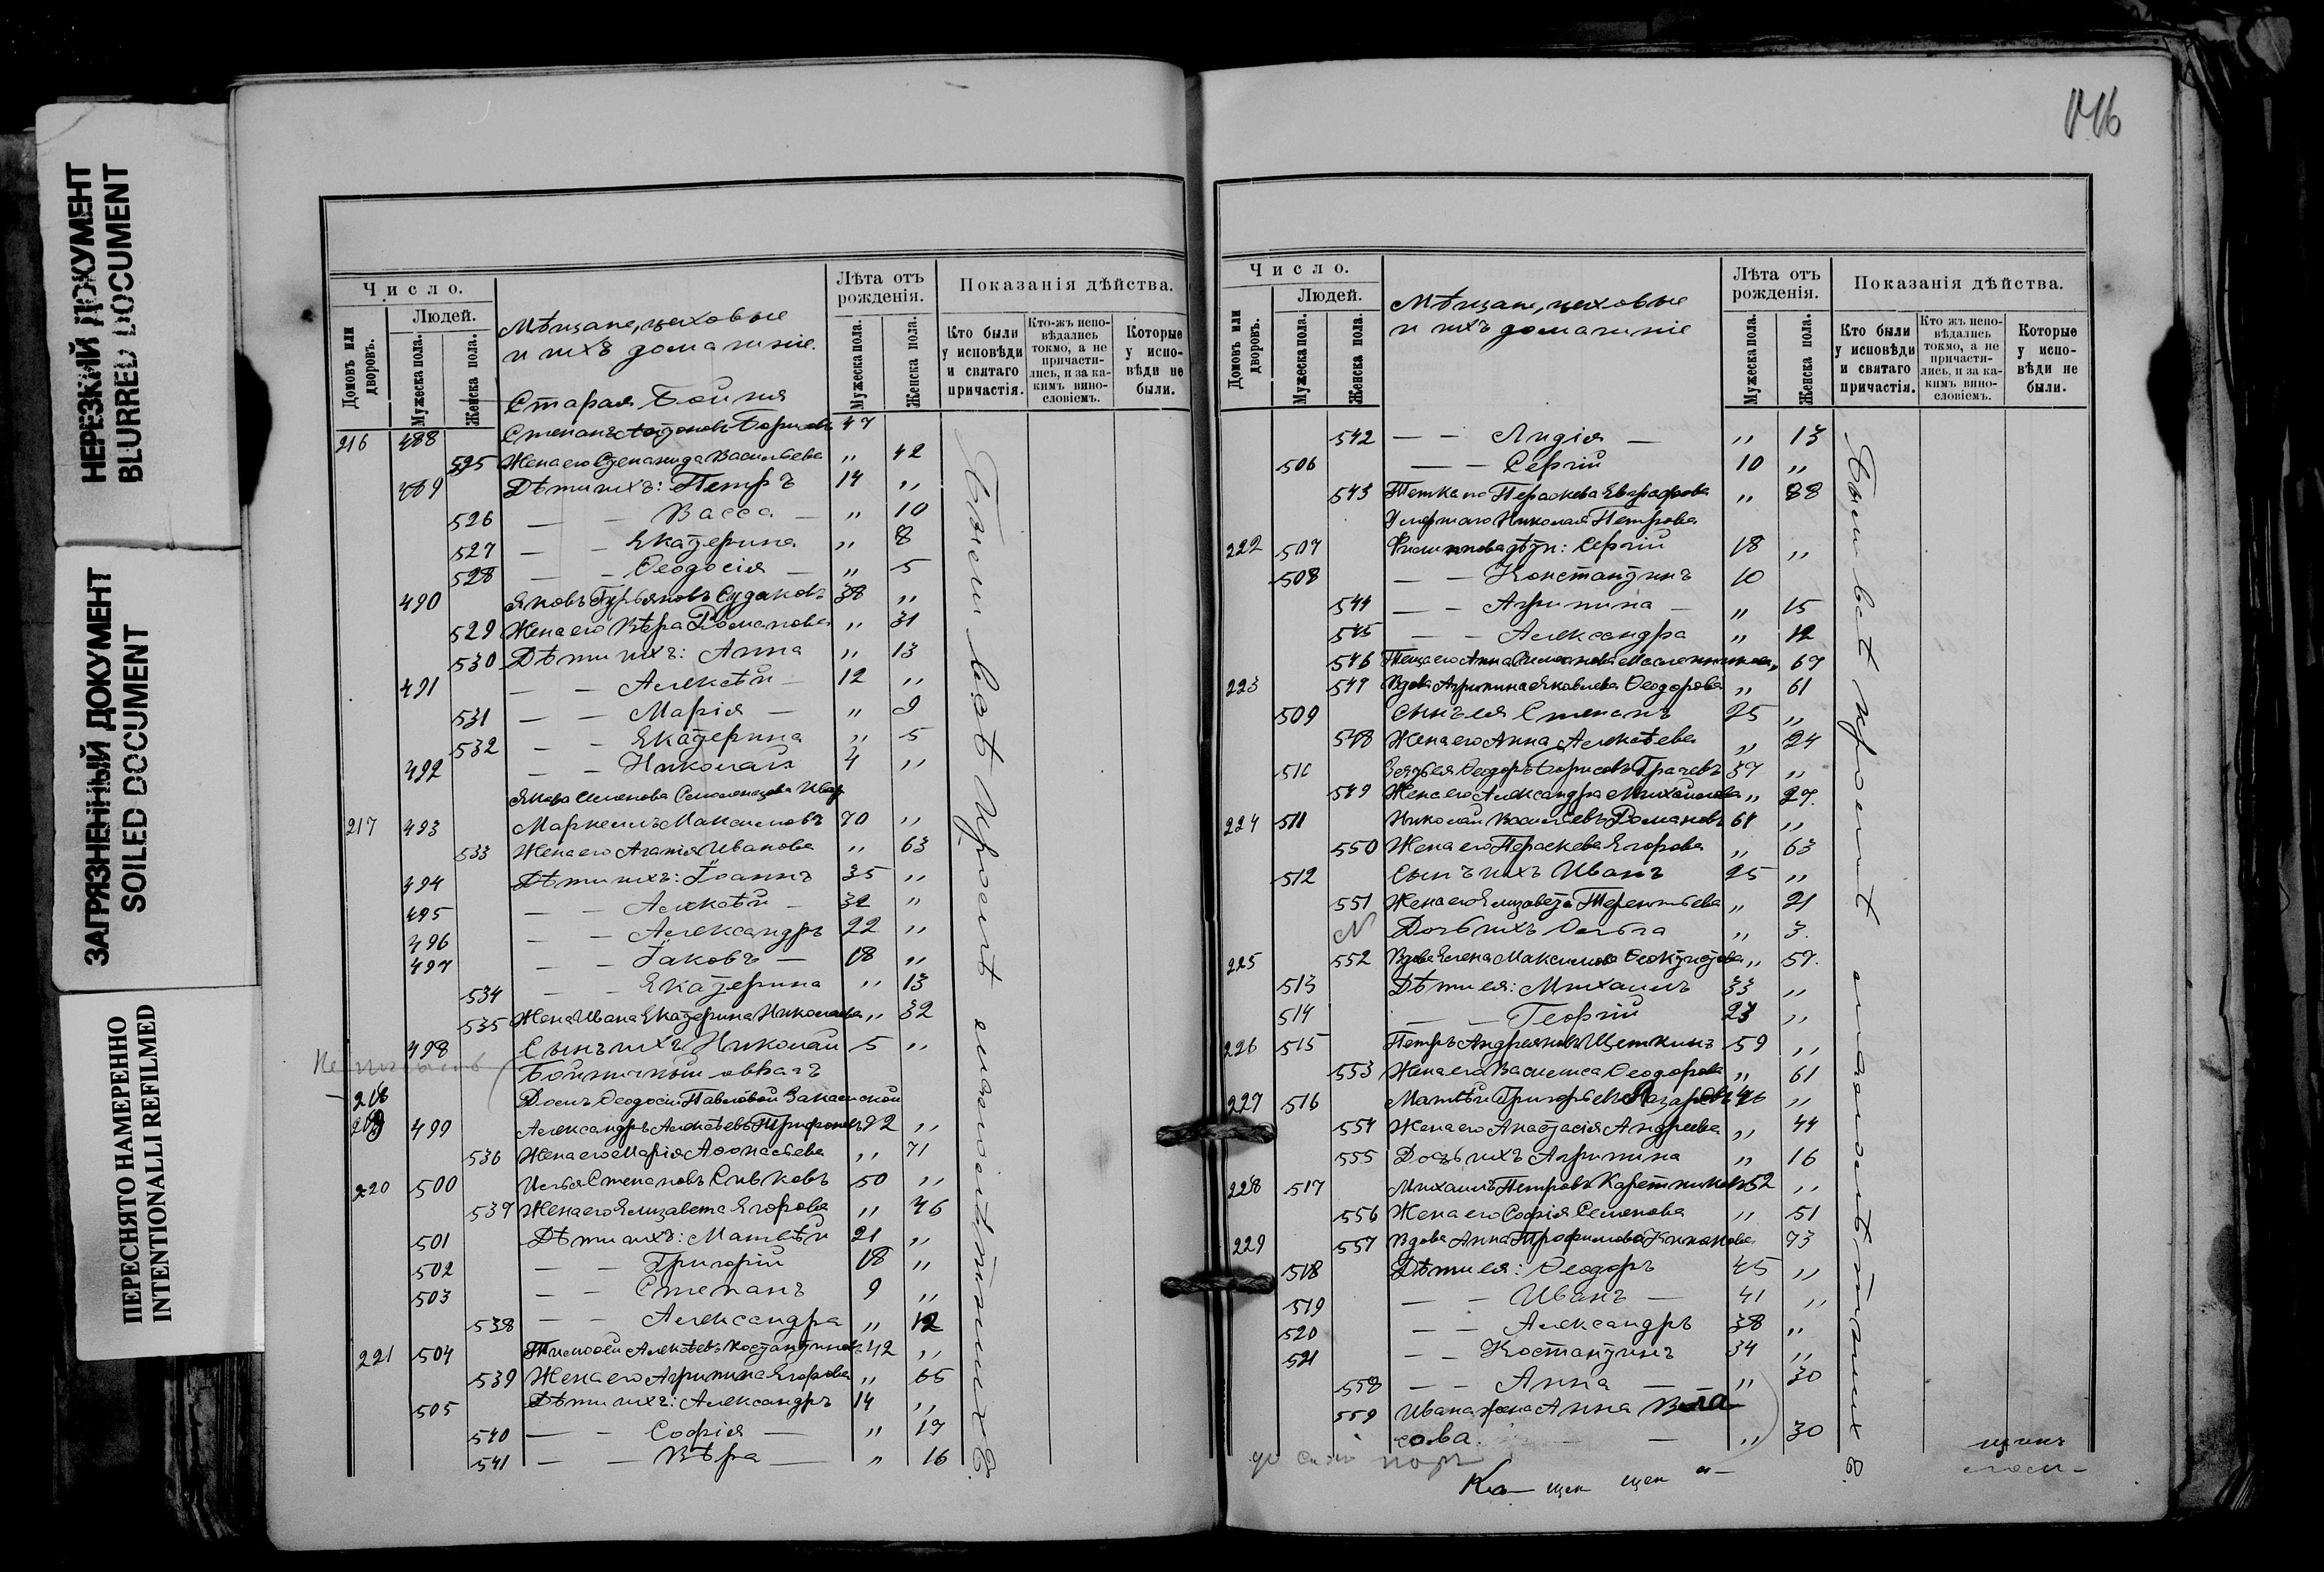 НЕРЕЗКИЙ ДОКУМЕНТ
BLURRED DOCUMENT
ЗАГРЯЗНЕННЫЙ ДОКУМЕНТ
SOILED DOCUMENT
ПЕРЕСНЯТО НАМЕРЕННО
INTENTIONALLI REFILMED
Число.
Домовъ или дворовъ.
Людей.
Мужеска пола.
Женска пола.
Мѣщане, цеховые
и ихъ домашніе.
Лѣта отъ рожденія.
Мужеска пола.
Женска пола.
Показанія дѣйства.
Кто были у исповѣди и святаго причастія.
Кто-жъ испо-вѣдались токмо, а не причасти-лись, и за ка-кимъ вино-словіемъ.
Которые у испо-вѣди не были.
Старая Бойня
216 488 Степанъ Борисовъ 47
525 Жена его Степанида Васильева „ 42
489 Дѣти ихъ: Петръ 14 „
526 — — Васса — „ 10
527 — — Екатерина „ 8
528 — — Ѳеодосія — „ 5
490 Яковъ Гурьяновъ Судаковъ 38 „
529 Жена его Вѣра Романова „ 31
530 Дѣти ихъ: Анна „ 13
491 — — Алексѣй — 12 „
531 — — Марія — „ 9
532 — — Екатерина „ 5
492 — — Николай 4 „
Семенова
217 493 Маркеллъ Максимовъ 70 „
533 Жена его Агафія Иванова „ 63
494 Дѣти ихъ: Іоаннъ 35 „
495 — — Алексѣй — 32 „
496 — — Александръ 22 „
497 — — Іаковъ — 18 „
534 — — Екатерина „ 13
535 Жена Ивана Екатерина Николаева „ 32
498 Сынъ ихъ Николай 5 „
Бойничный оврагъ
218 Домъ Ѳеодосіи Павловой
219 499 Александръ Алексѣевъ Трифоновъ 72 „
536 Жена его Марія Аѳонасьева „ 71
220 500 Илья Степановъ Сивковъ 50 „
537 Жена его Елизавета Егорова „ 46
501 Дѣти ихъ: Матвѣй 21 „
502 — — Григорій 18 „
503 — — Степанъ 9 „
538 — — Александра „ 12
221 504 Тимоѳей Алексѣевъ Костантиновъ 42 „
539 Жена его Агрипина Егорова „ 66
505 Дѣти ихъ: Александръ 14 „
540 — — Софія — „ 17
541 — — Вѣра — „ 16
Были всѣ кромѣ малолѣтнихъ
Число.
Домовъ или дворовъ.
Людей.
Мужеска пола.
Женска пола.
Мѣщане, цеховые
и ихъ домашніе
Лѣта отъ рожденія.
Мужеска пола.
Женска пола.
Показанія дѣйства.
Кто были у исповѣди и святаго причастія.
Кто жъ испо-вѣдались токмо, а не причасти-лись, и за ка-кимъ вино-словіемъ.
Которые у испо-вѣди не были.
542 — — Лидія — „ 13
506 — — Сергій 10 „
543 Тетка его Параскева Евграфова „ 88
Умершаго Николая Петрова
222 507 Филиппова дѣти: Сергій 18 „
508 — — Константинъ 10
544 — — Агрипина — „ 15
545 — — Александра „ 12
546 Теща его Анна Масленникова „ 67
223 547 Вдова Агрипина Яковлева Ѳеодорова „ 61
509 Сынъ ея Степанъ 25 „
548 Жена его Анна Алексѣева „ 24
510 Зять ея Ѳеодоръ Борисовъ Грачевъ 37 „
549 Жена его Александра Михайлова „ 27.
224 511 Николай Васильевъ Романовъ 61 „
550 Жена его Параскева Егорова „ 63
512 Сынъ ихъ Иванъ 25 „
551 Жена его Елизавета Терентьева „ 21
N Дочь ихъ Ольга „ 3.
225 552 Вдова Елена Максимова Ѳеоктистова „ 57.
513 Дѣти ея: Михаилъ 33 „
514 — — Георгій 23 „
226 515 Петръ Андреяновъ Щеткинъ 59 „
553 Жена его Василиса Ѳеодорова „ 61
227 516 Матвѣй Григорьевъ Лазаревъ 46 „
554 Жена его Анастасія Андреева „ 44
555 Дочь ихъ Агрипина „ 16
228 517 Михаилъ Петровъ Каретниковъ 52 „
556 Жена его Софія Семенова „ 51
229 557 Вдова Анна Трофимова 73
518 Дѣти ея: Ѳеодоръ 45 „
519 — — Иванъ — 41 „
520 — — Александръ 38 „
521 — — Костантинъ 34 „
558 — — Анна — „ 30
559 Ивана жена Анна Вла-
сова. — — „ 30
Были всѣ кромѣ малолѣтнихъ